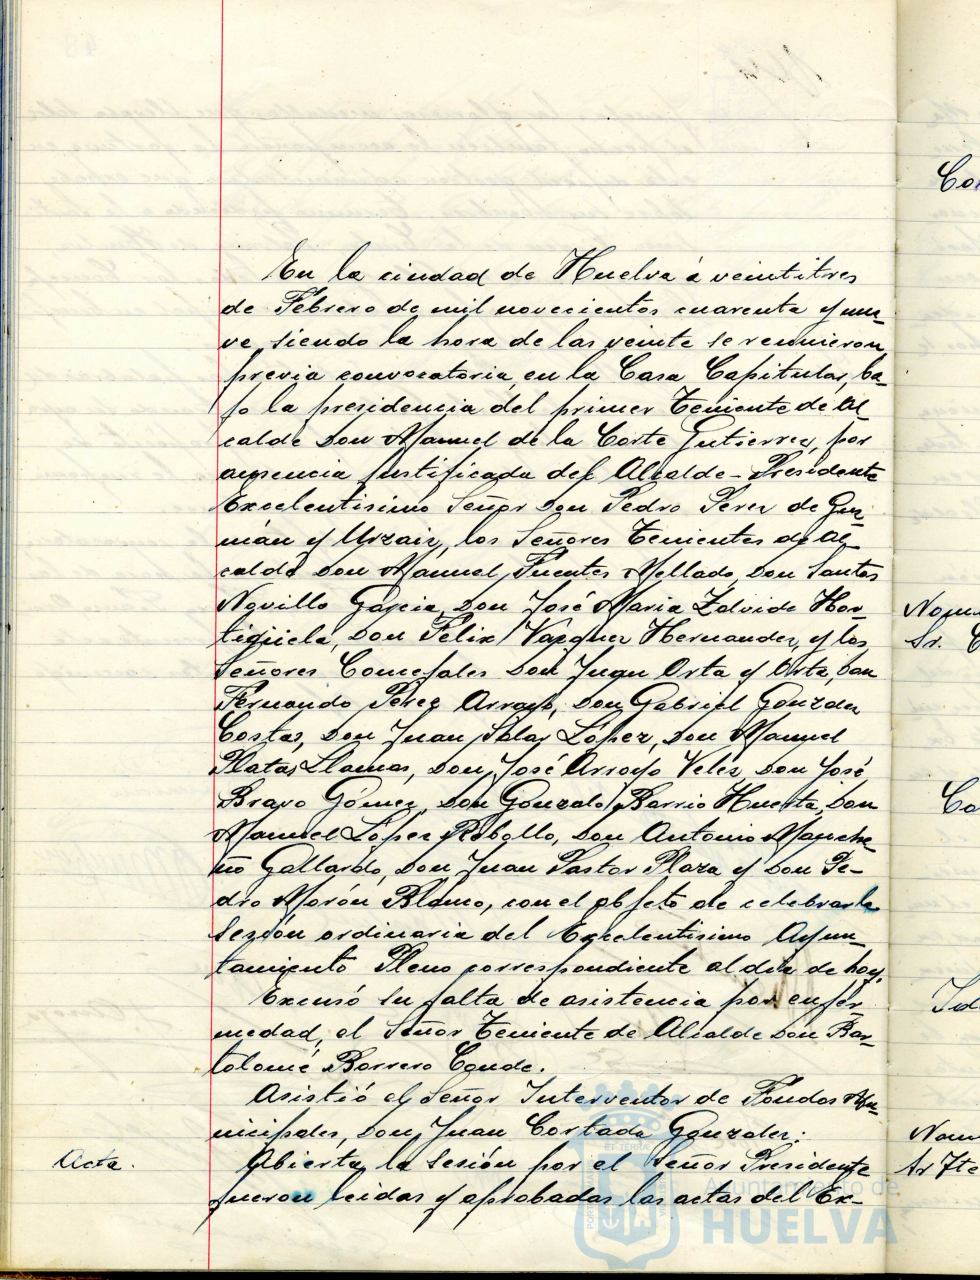 En la ciudad de Huelva á veintitres
de Febrero de mil novecientos cuarenta y nue-
ve, siendo la hora de las veinte se reunieron,
previa convocatoria, en la Casa Capitular, ba-
jo la presidencia del primer Teniente de Al-
calde Don Manuel de la Corte Gutierrez, por
ausencia justificada del Alcalde-Presidente
Excelentisimo Señor Don Pedro Perez de Guz-
mán y Urzaiz, los Señores Tenientes de Al-
calde Don Manuel Fuentes Mellado, Don Santos
Novillo Garcia, Don José Maria Zalvide Hor-
tigüela, Don Félix Vazquez Hernandez, y los
Señores Concejales Don Juan Orta y Orta, Don
Fernando Pérez Arroyo, Don Gabriel Gonzalez
Costas, Don Juan Salas López, Don Manuel
Platas Llamas, Don José Arroyo Velez, Don José
Bravo Gómez, Don Gonzalo Barrio Huerta, Don
Manuel López Rebollo, Don Antonio Manche-
ño Gallardo, Don Juan Pastor Plaza y Don Pe-
dro Morón Blanco, con el objeto de celebrar la
sesión ordinaria del Excelentisimo Ayun-
tamiento Pleno correspondiente al dia de hoy.
Excusó su falta de asistencia por enfer-
medad, el Señor Teniente de Alcalde Don Bar-
tolomé Borrero Conde.
Asistió el Señor Interventor de Fondos Mu-
nicipales, Don Juan Cortada Gonzalez.
Acta. Abierta la sesión por el Señor Presidente
fueron leidas y aprobadas las actas del Ex-
Ayuntamiento de
HUELVA